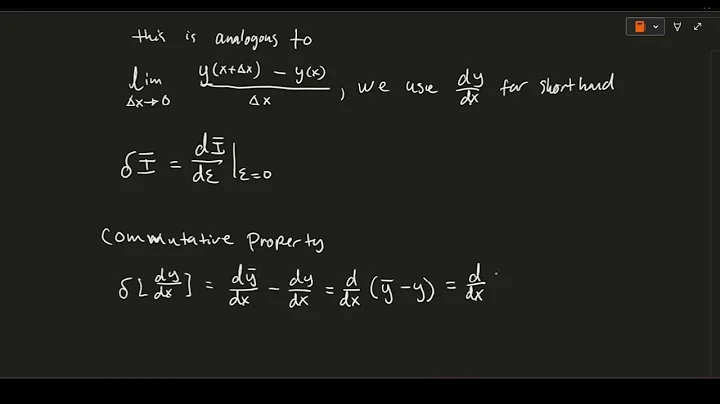 this is analogous to
lim Δx→0 y(x+Δx) - y(x) / Δx , we use dy/dx for shorthand
δĪ = dĪ/dε |ε=0
Commutative Property
δ[dy/dx] = dȳ/dx - dy/dx = d/dx (ȳ - y) = d/dx